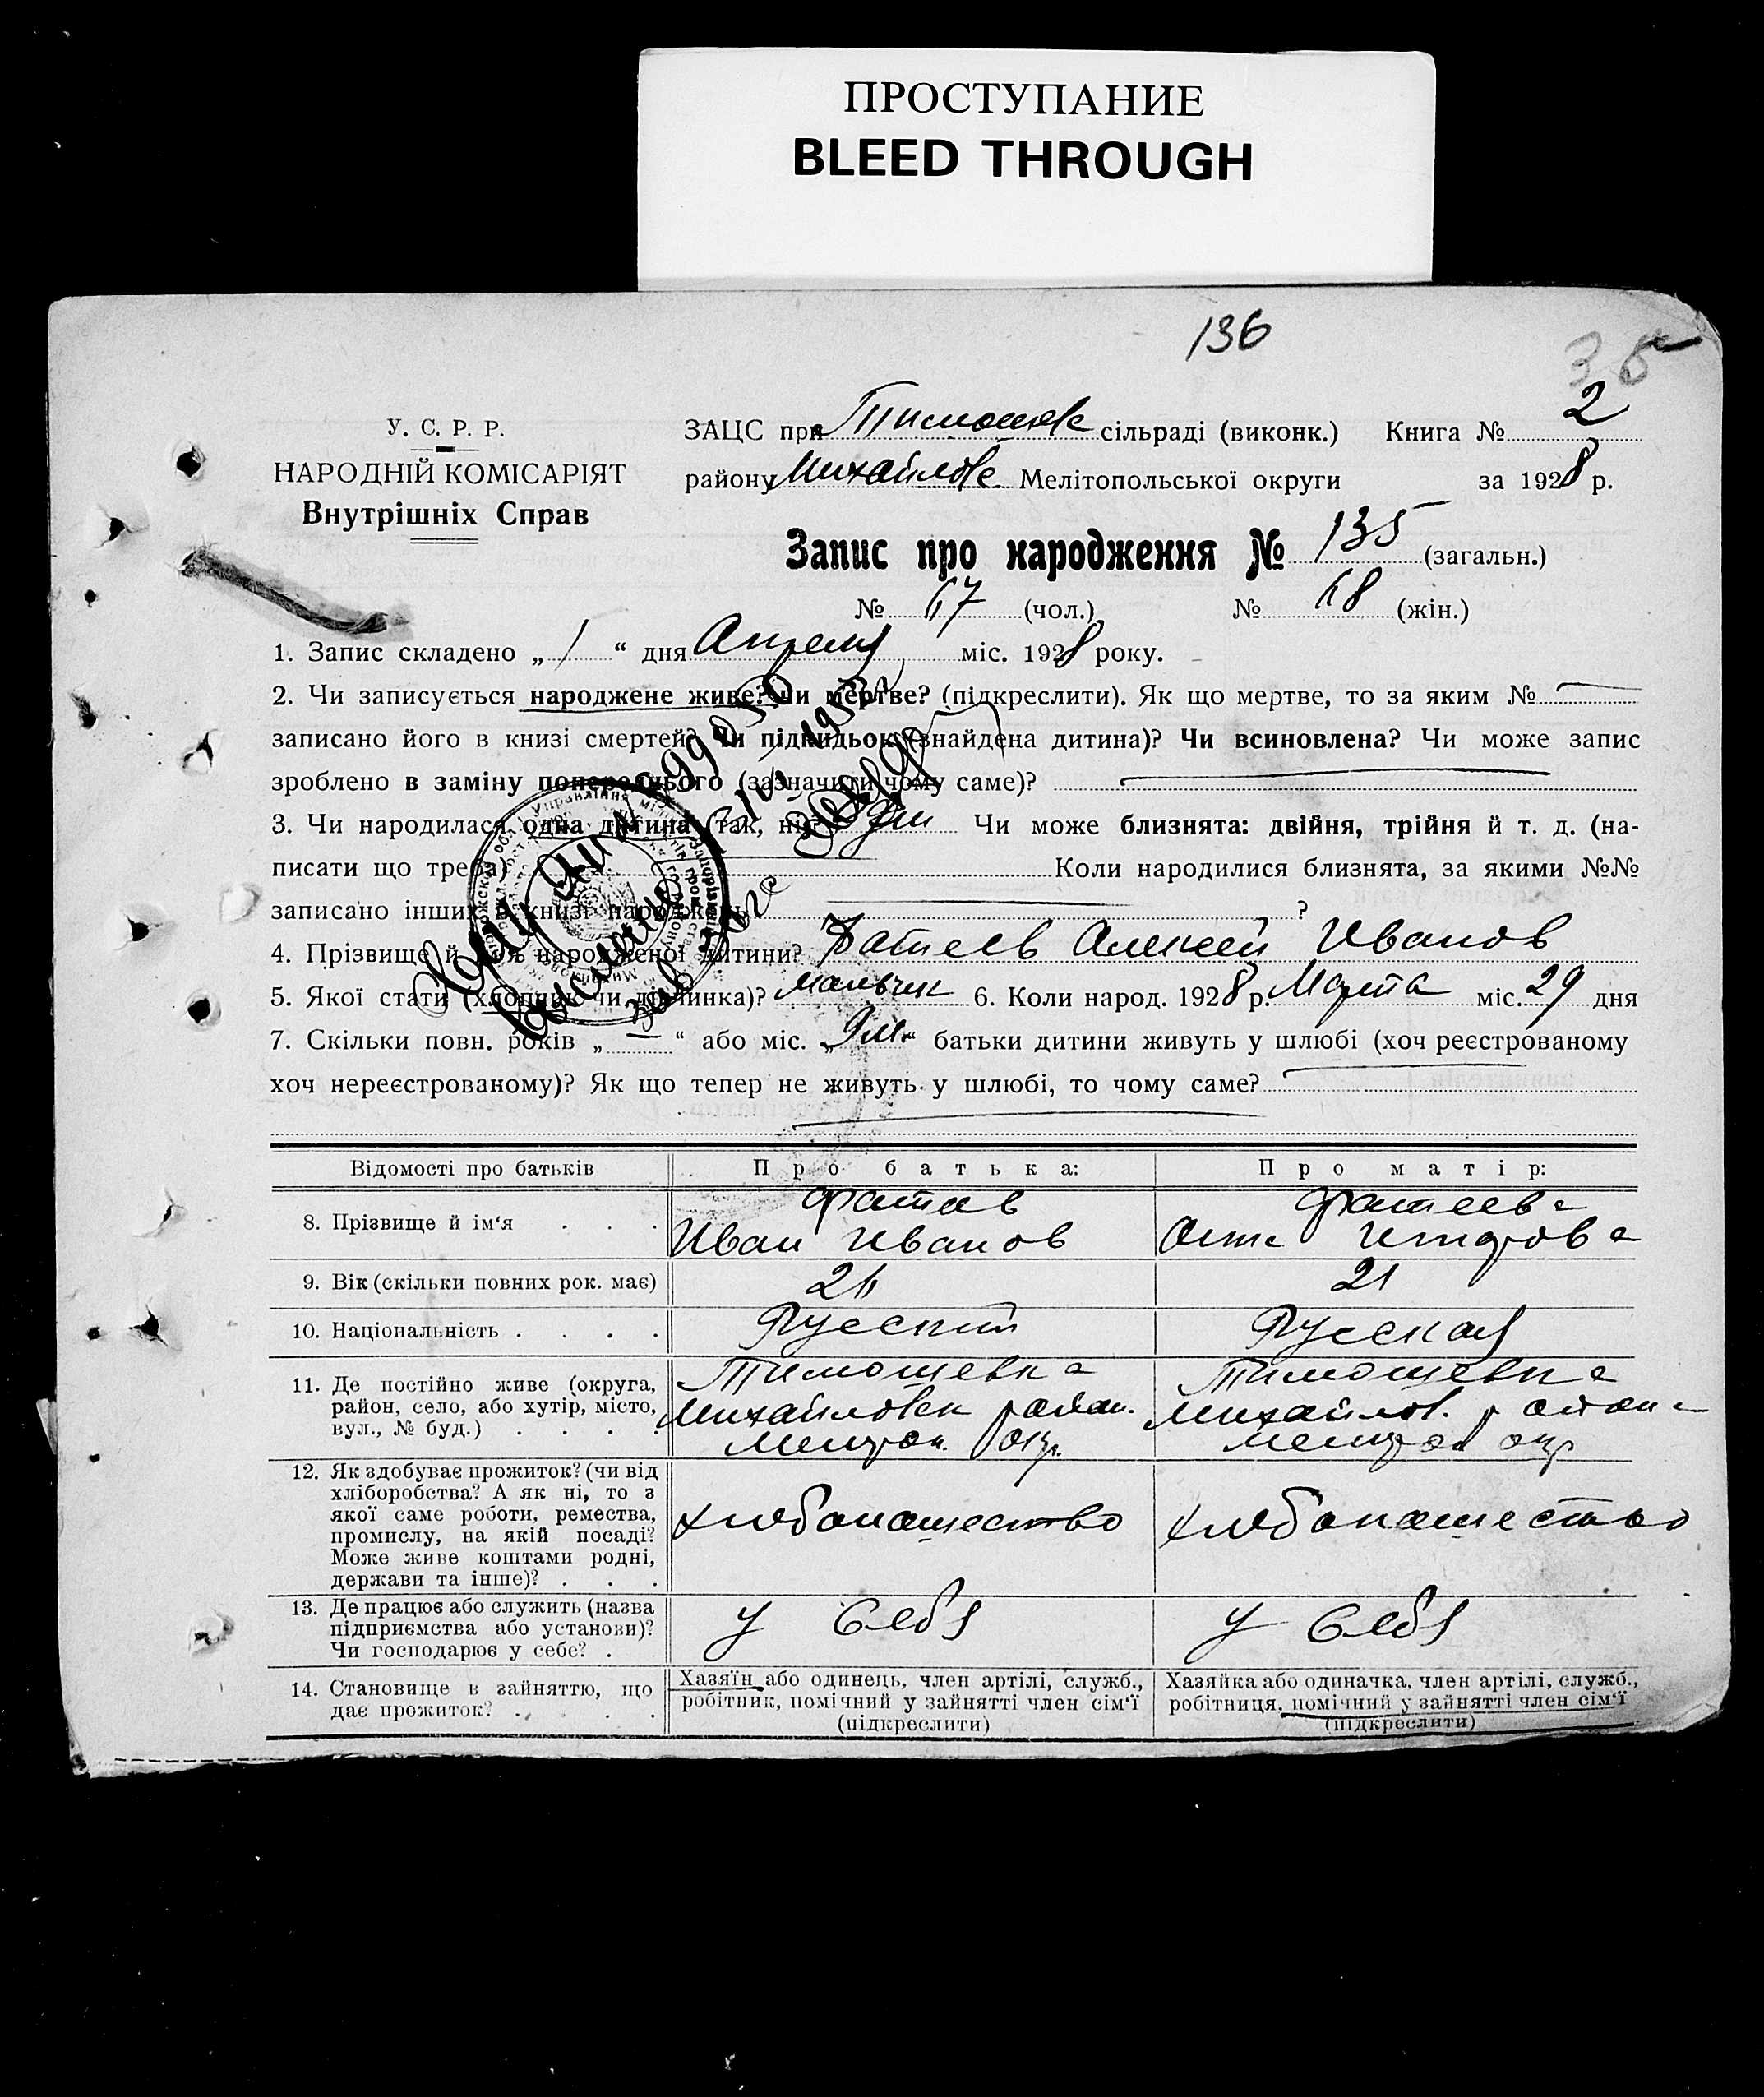 ПРОСТУПАНИЕ
BLEED THROUGH
136
35
У. С. Р. Р.
НАРОДНІЙ КОМІСАРІЯТ
Внутрішніх Справ
ЗАЦС при Тимошев сільраді (виконк.) Книга № 2
району Михайлов Мелітопольської округи за 1928 р.
Запис про народження № 135 (загальн.)
№ 67 (чол.) № 68 (жін.)
1. Запис складено „ 1 “ дня Апреля міс. 1928 року.
2. Чи записується народжене живе? чи мертве? (підкреслити). Як що мертве, то за яким №
записано його в книзі смертей? Чи підкидьок (знайдена дитина)? Чи всиновлена? Чи може запис
зроблено в заміну попереднього (зазначити чому саме)?
3. Чи народилася одна дитина (так, ні)? Чи може близнята: двійня, трійня й т. д. (на-
писати що треба) Коли народилися близнята, за якими №№
записано інших в книзі народжень ?
4. Прізвище й ім'я народженої дитини? Фатеев Алексей Иванов
5. Якої стати (хлопчик чи дівчинка)? мальчик 6. Коли народ. 1928 р. Марта міс. 29 дня
7. Скільки повн. років „ — “ або міс. „ 9 м. “ батьки дитини живуть у шлюбі (хоч реєстрованому
хоч нереєстрованому)? Як що тепер не живуть у шлюбі, то чому саме?
Відомості про батьків Про батька: Про матір:
8. Прізвище й ім‘я . . . Фатеев Иван Иванов Фатеева
9. Вік (скільки повних рок. має) 21
10. Національність . . . . Русский Русская
11. Де постійно живе (округа,
район, село, або хутір, місто,
вул., № буд.) . . . .
Тимошевка
Михайловск район.
Мелитоп. окр.
Тимошевка
Михайлов. района
Мелитоп окр
12. Як здобуває прожиток? (чи від
хліборобства? А як ні, то з
якої саме роботи, ремества,
промислу, на якій посаді?
Може живе коштами родні,
держави та інше)? . . .
хлебопашество хлебопашество
13. Де працює або служить (назва
підприємства або установи)?
Чи господарює у себе? .
у себя у себя
14. Становище в зайняттю, що
дає прожиток? . . . .
Хазяїн або одинець, член артілі, служб.,
робітник, помічний у зайнятті член сім‘ї
(підкреслити)
Хазяйка або одиначка, член артілі, служб.,
робітниця, помічний у зайнятті член сім‘ї
(підкреслити)